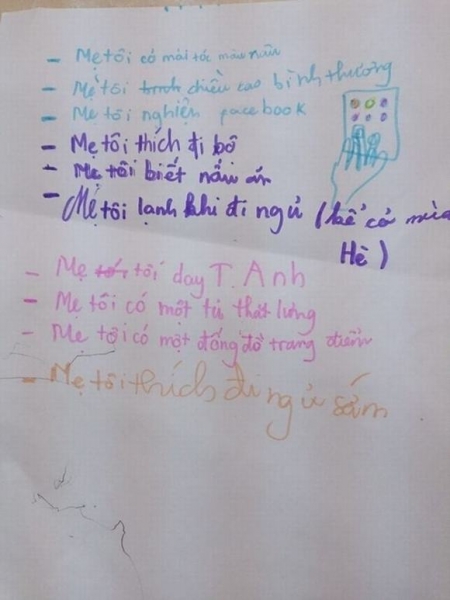 - Mẹ tôi có mái tóc màu nâu
- Mẹ tôi chiều cao bình thương
- Mẹ tôi nghiện facebook
- Mẹ tôi thích đi bộ
- Mẹ tôi biết nấu ăn
- Mẹ tôi lạnh khi đi ngủ (kể cả mùa
Hè)
- Mẹ tôi dạy T. Anh
- Mẹ tôi có một tủ thắt lưng
- Mẹ tôi có một đống đồ trang điểm
- Mẹ tôi thích đi ngủ sớm